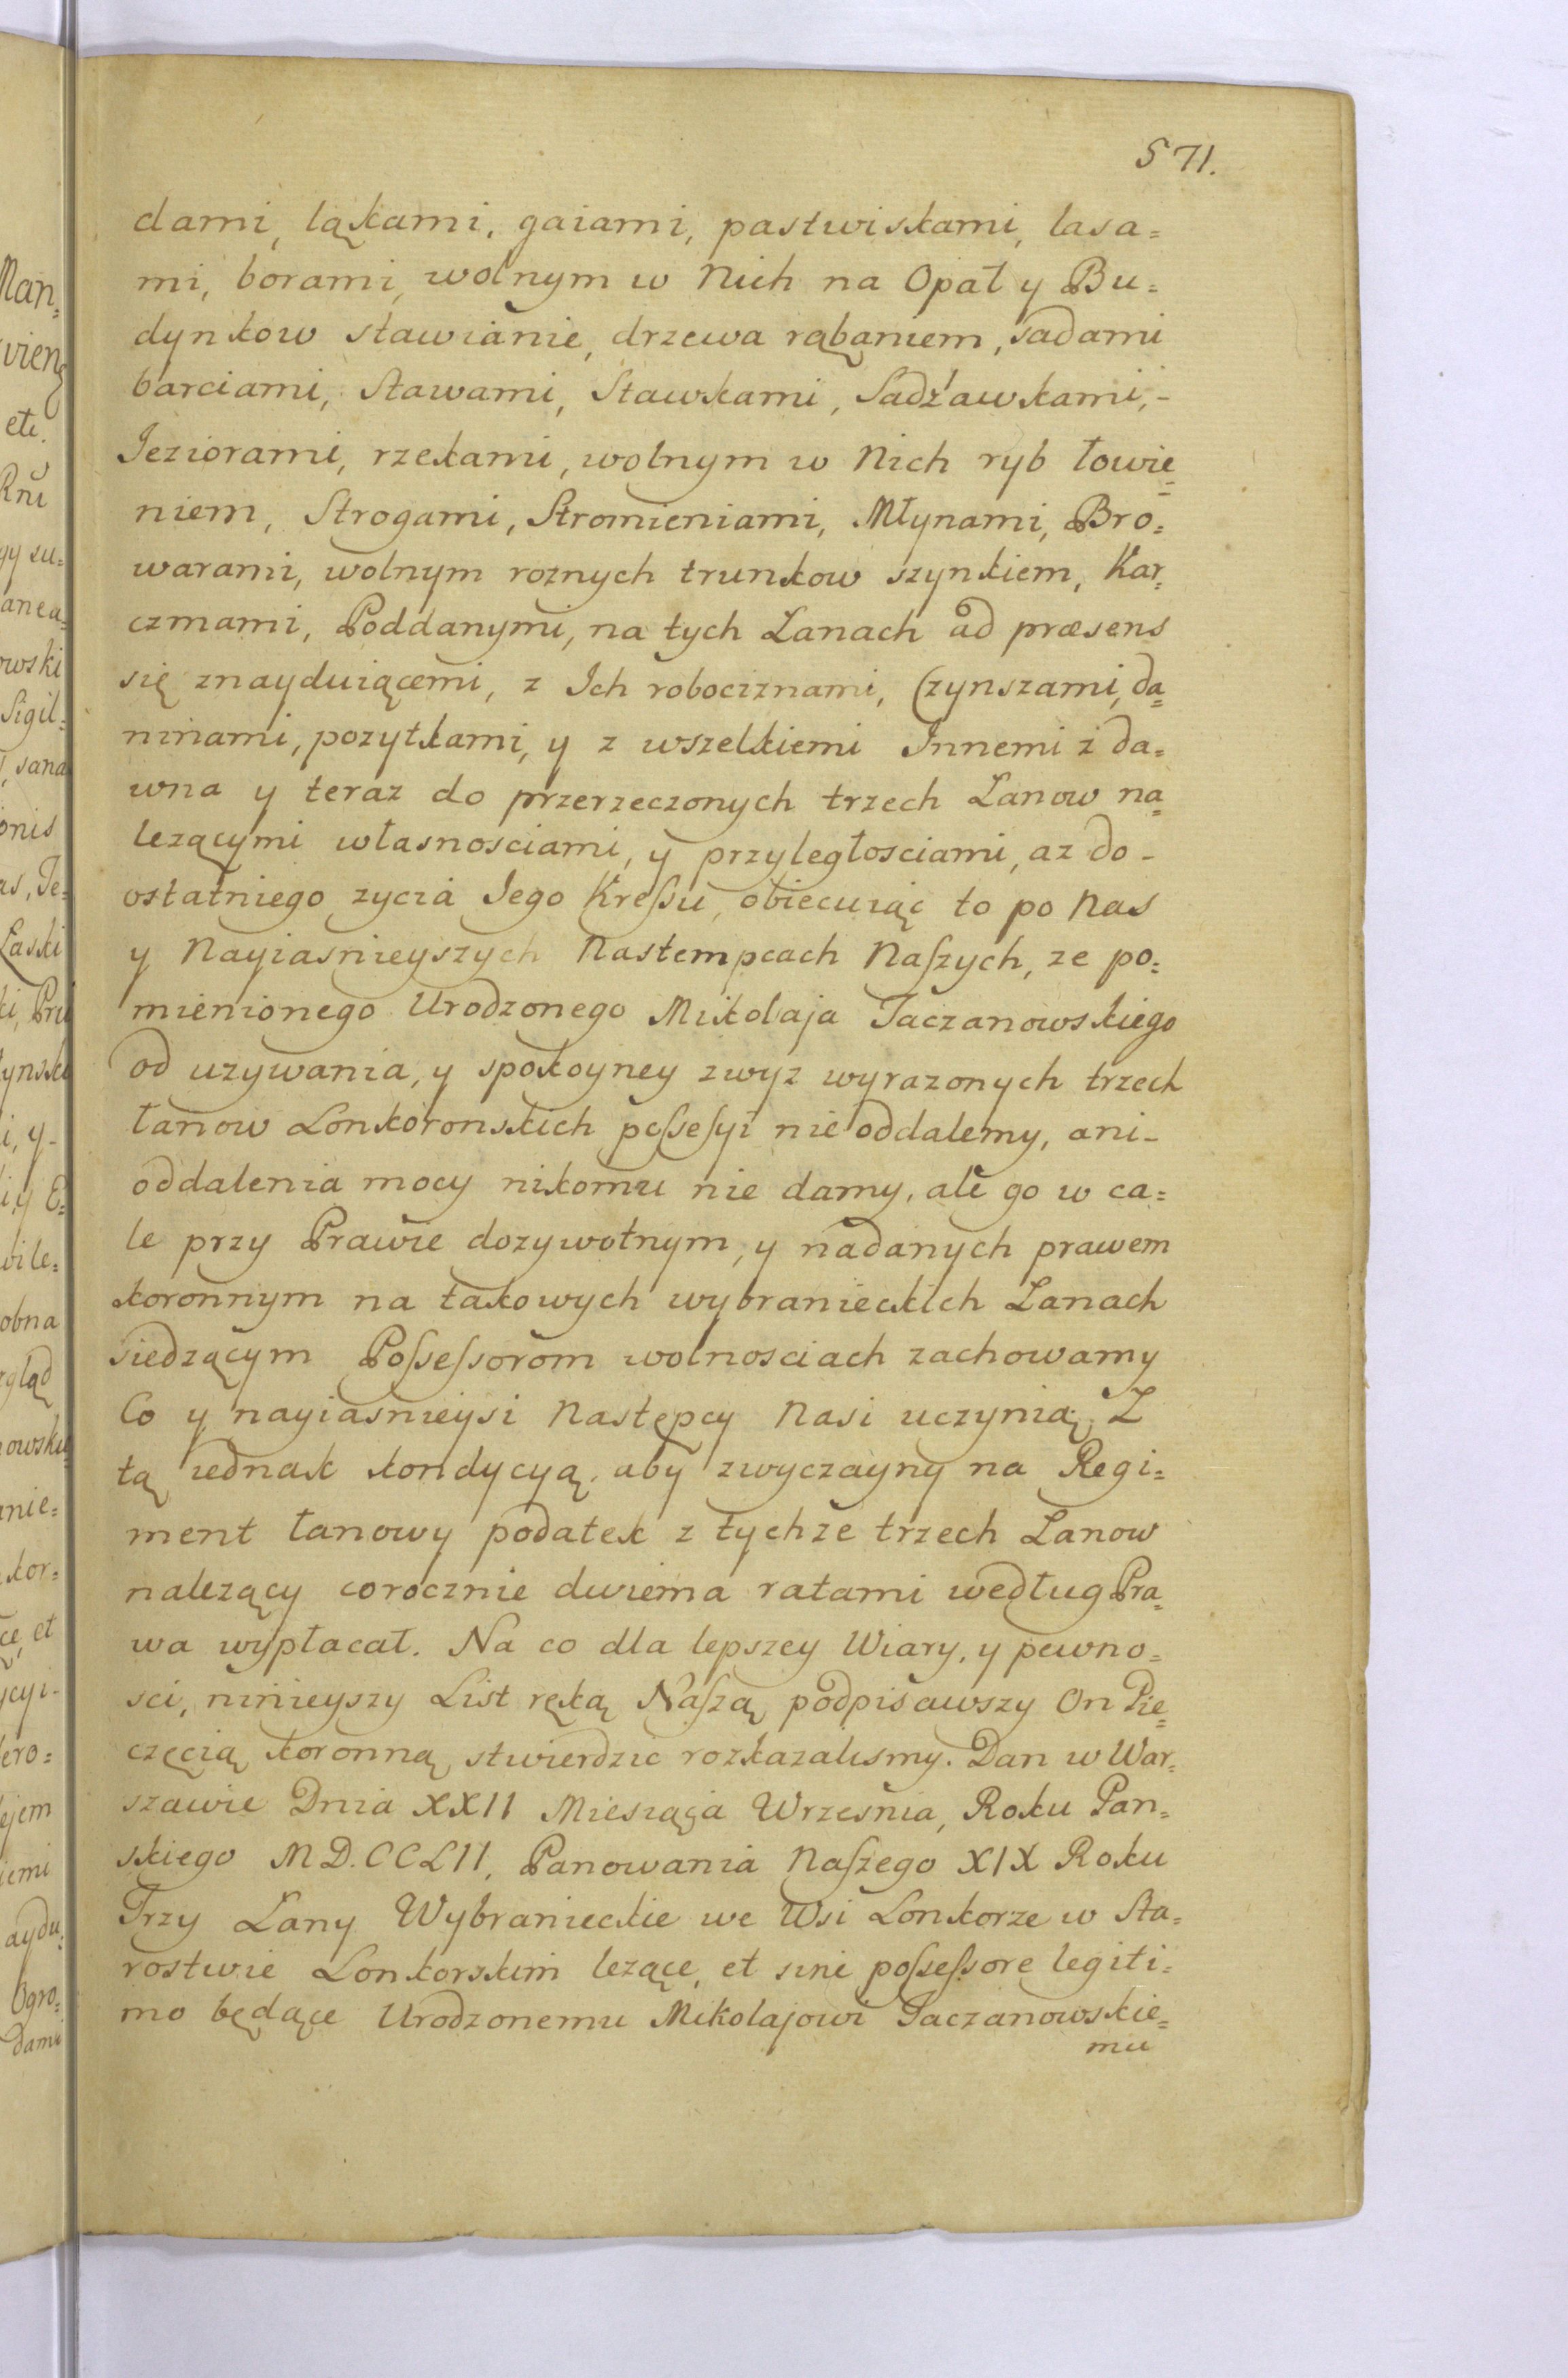 571.
dami, łąkami, gaiami, pastwiskami, lasa=
mi, borami, wolnym w Nich na Opał y Bu=
dynkow stawianie, drzewa rąbąniem, sadami
barciami, Stawami, Stawkami, Sadz'awkami,-
Ieziorami, rzekami, wolnym w Nich ryb łowie=
niem, Strogami, Stromieniami, Młynami, Bro=
warami, wolnym roznych trunkow szynkiem, Kar=
czmami, Poddanymi, na tych Lanach ad præsens
się znayduiącemi, z Ich robociznami, Czynszami, da=
ninami, pozytkami, y z wszelkiemi Innemi z da=
wna y teraz do przerzeczonych trzech Lanow na=
lezącymi własnosciami, y przyległosciami, az do-
ostatniego zycia Iego Kreſsu, obiecuiąc to po Nas
y Nayiasnieyszych Nastempcach Naſzych, ze po=
mienionego Urodzonego Mikolaja Taczanowskiego
od uzywania, y spokoyney zwyz wyrazonych trzech
łanow Lonkoronskich poſseſyi nie oddalemy, ani-
oddalenia mocy nikomu nie damy, ale go w ca=
le przy Prawie dozywotnym, y nadanych prawem
koronnym na takowych wybranieckich Lanach
siedzącym Poſseſsorom wolnosciach zachowamy
Co y nayiasnieysi Następcy Nasi uczynią; Z
tą iednak kondycyą, aby zwyczayny na Regi=
ment łanowy podatek z tychze trzech Lanow
nalezący corocznie dwiema ratami według Pra=
wa wypłacał. Na co dla lepszey Wiary, y pewno=
sci, ninieyszy List ręką Naſzą podpisawszy On Pie=
częcią koronną stwierdzic rozkazalismy. Dan w War=
szawie Dnia XXII Miesiąca Wrzesnia, Roku Pan=
skiego MD.CCLII, Panowania Naſzego XIX Roku
Trzy Lany Wybranieckie we Wsi Lonkorze w Sta=
rostwie Lonkorskim lezące, et sine poſseſsore legiti=
mo będące Urodzonemu Mikolajowi Taczanowskie=
mu